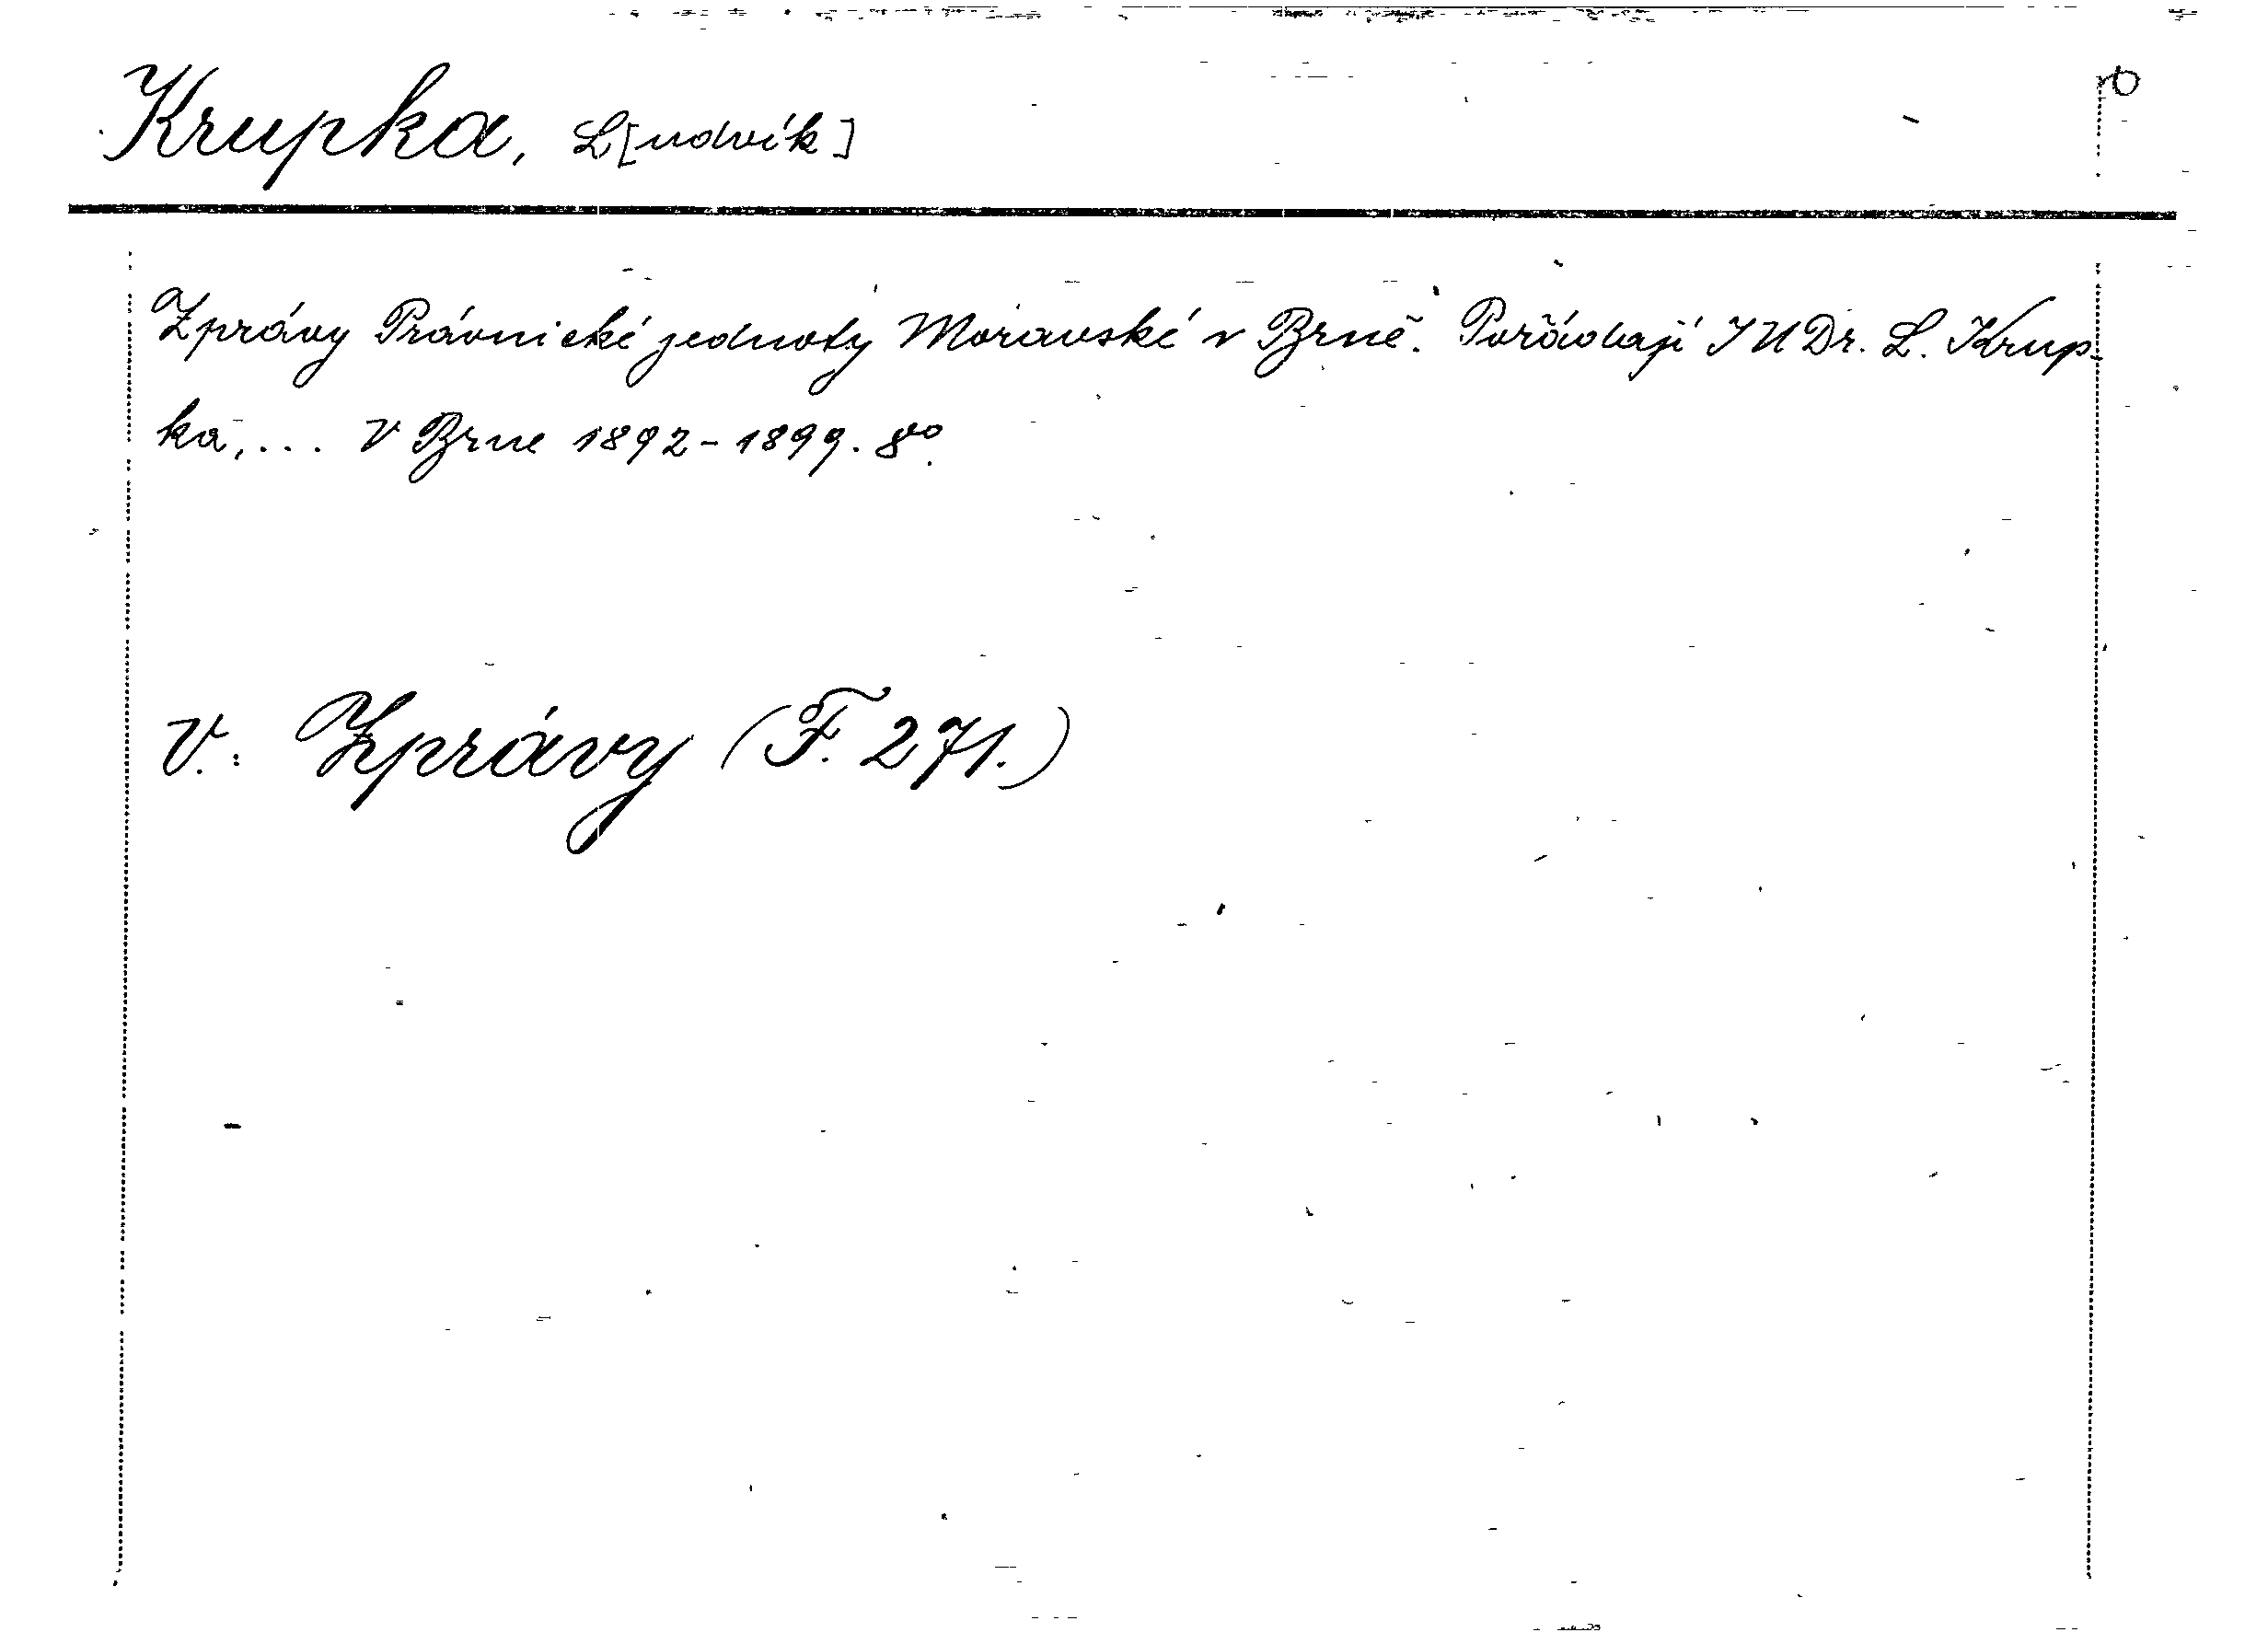 Krupka, L[udvík]
Zprávy Právnické jednoty Moravské v Brně. Pořádají JUDr. L. Krup-
ka,... V Brne 1892-1899. 8º.
V.: Zprávy (F. 271.)